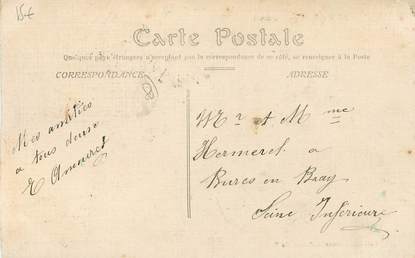 15€
Carte Postale
Quelques pays étrangers n'acceptant pas la correspondance de ce côté, se renseigner à la Poste
CORRESPONDANCE
ADRESSE
Mes amitiés
a tous deux
E
Mr et Mme
a
Bures en Bray
Seine Inférieure